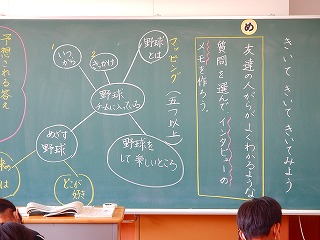 きいて きいて きいてみよう
め
友達の人がらがよくわかるような
質問を選んで インタビューの
メモを作ろう。
マッピング(五つ以上)
野球とは
きっかけ
いつから
野球
チームに入っている
野球を
して楽しいところ
めざす
野球
どこが
好き
予想される答え